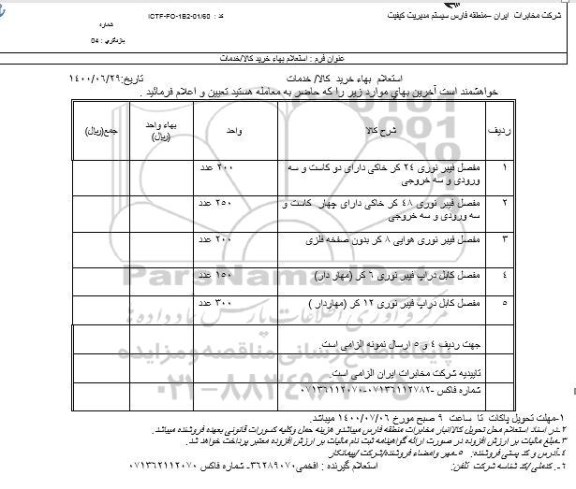 شرکت مخابرات ایران –منطقه فارس سیستم مدیریت کیفیت
کد : ICTF-FO-182-01/60
شماره
بازنگری : 04
عنوان فرم : استعلام بهاء خرید کالا/خدمات
استعلام بهاء خرید کالا/ خدمات تاریخ:۱۴۰۰/۰۶/۲۹
خواهشمند است آخرین بهای موارد زیر را که حاضر به معامله هستید تعیین و اعلام فرمائید .
ردیف شرح کالا واحد بهاء واحد (ریال) جمع(ریال)
۱ مفصل فیبر نوری ۲۴ کر خاکی دارای دو کاست و سه ورودی و سه خروجی ۲۰۰ عدد
۲ مفصل فیبر نوری ۴۸ کر خاکی دارای چهار کاست و سه ورودی و سه خروجی ۲۵۰ عدد
۳ مفصل فیبر نوری هوایی ۸ کر بدون صفحه فلزی ۲۰۰ عدد
۴ مفصل کابل دراپ فیبر نوری ۶ کر (مهار دار) ۱۵۰ عدد
۵ مفصل کابل دراپ فیبر نوری ۱۲ کر (مهاردار ) ۳۰۰ عدد
جهت ردیف ۴ و ۵ ارسال نمونه الزامی است.
تاییدیه شرکت مخابرات ایران الزامی است
شماره فاکس ۰۷۱۳۶۱۱۲۷۸۲-۰۷۱۳۶۱۱۲۰۷۰
ParsNamadData
مرکز فرآوری اطلاعات پارس نماد داده ها
پایگاه اطلاع رسانی مناقصه و مزایده
۰۲۱-۸۸۳۴۹۶۷۰
۱-مهلت تحویل پاکات تا ساعت ۹ صبح مورخ ۱۴۰۰/۰۷/۰۶ میباشد.
۲-در اسناد استعلام محل تحویل کالا/انبار مخابرات منطقه فارس میباشدو هزینه حمل وکلیه کسورات قانونی بعهده فروشنده میباشد.
۳-مبلغ مالیات بر ارزش افزوده در صورت ارائه گواهینامه ثبت نام مالیات بر ارزش افزوده معتبر پرداخت خواهد شد.
۴-آدرس و کد پستی فروشنده: ۵-مهر وامضاء فروشنده/شرکت /پیمانکار
۶- کدملی /کد شناسه شرکت تلفن: استعلام گیرنده : افخمی۳۶۲۸۹۰۷۰- شماره فاکس ۰۷۱۳۶۲۱۱۲۰۷۰